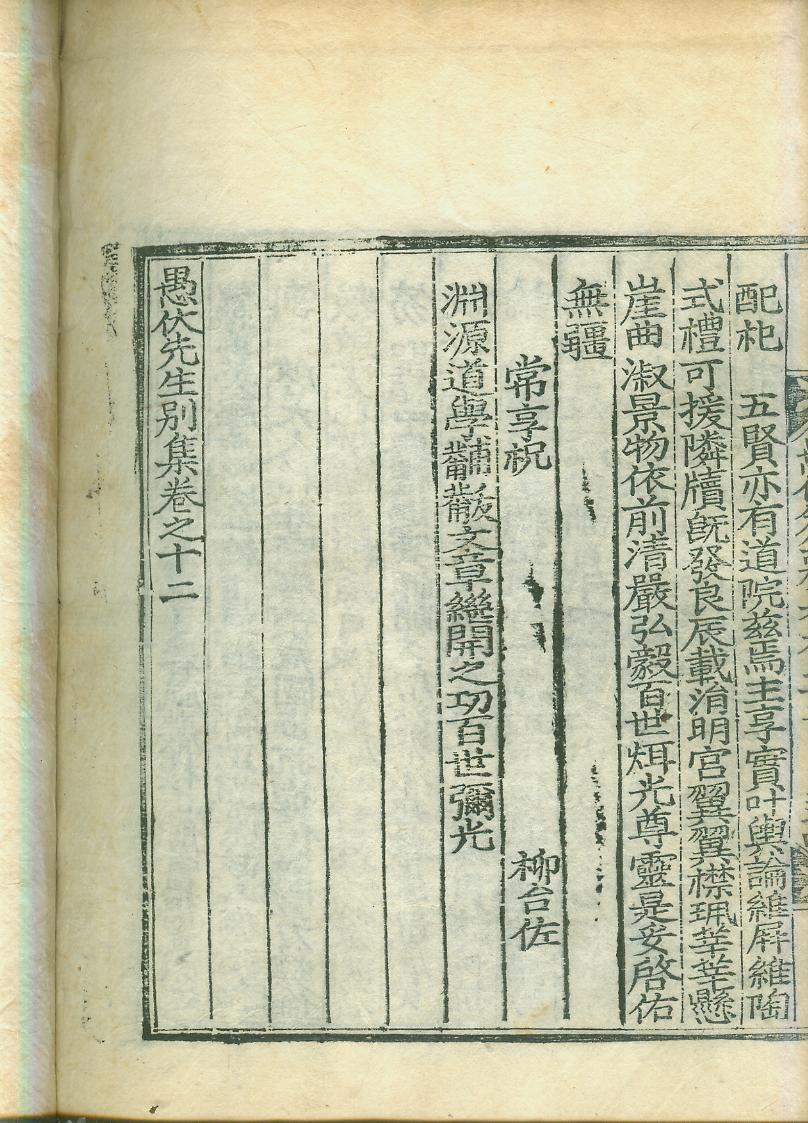 配杞 五賢亦有道院茲焉主享實叶輿論維屛維陶
式禮可援隣牘旣發良辰載涓明宮翼翼襟珮莘莘懸
崖曲淑景物依前清嚴弘毅百世炳光尊靈是妥啓佑
無疆
常享祝 柳台佐
淵源道學黼黻文章繼開之功百世彌光
愚伏先生別集卷之十二